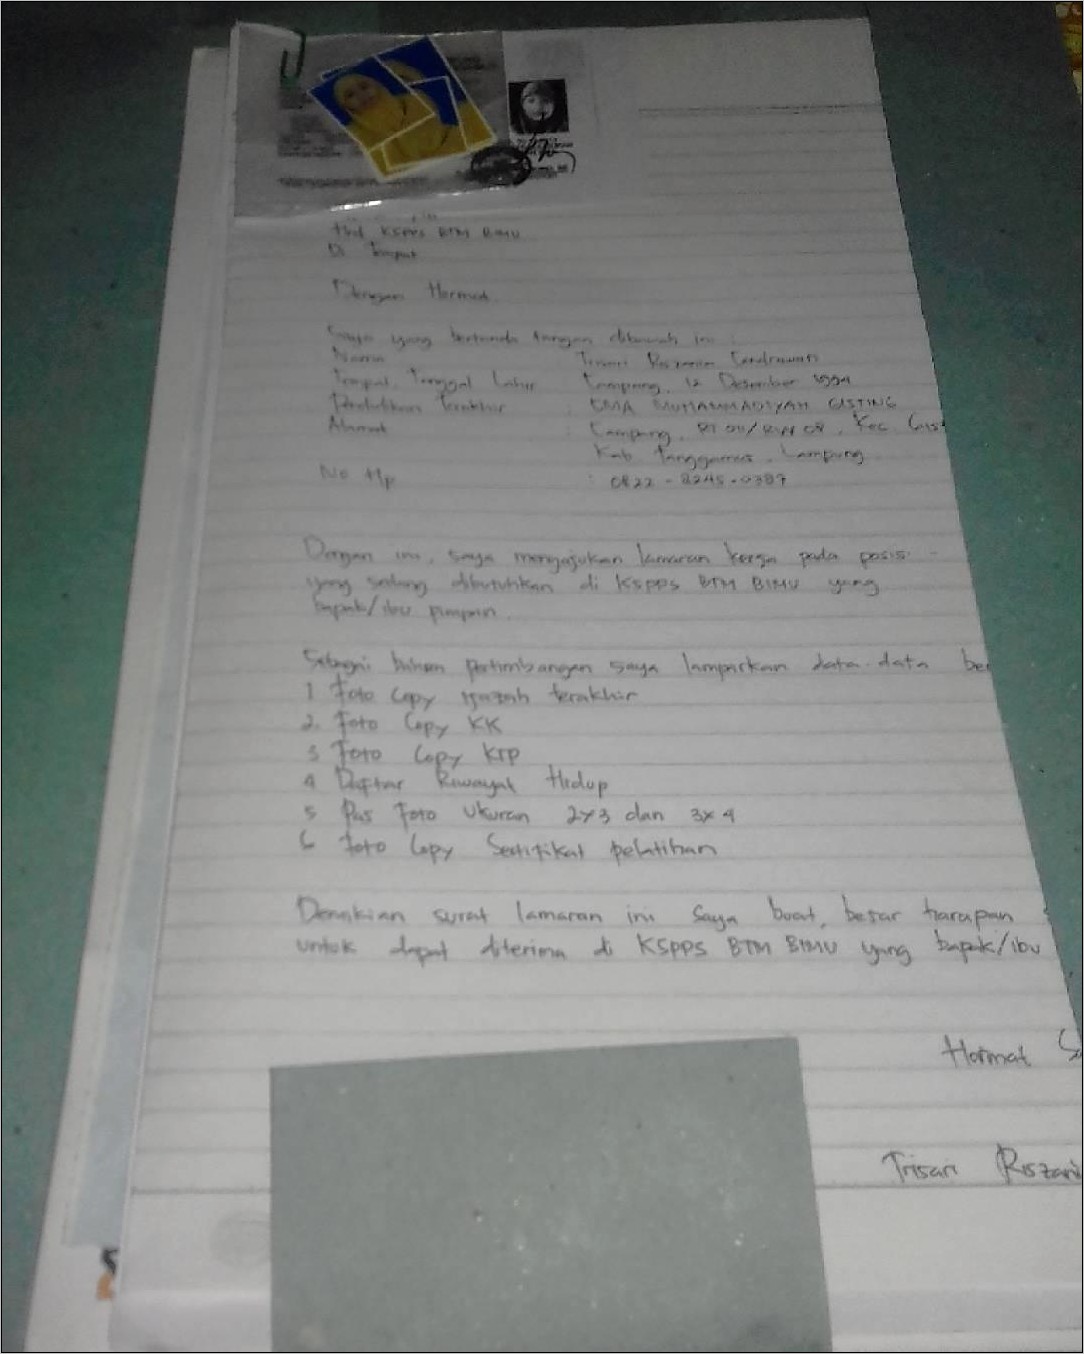 KSPPS BTM BIMU
Di Tempat
Dengan Hormat
Saya yang bertanda tangan dibawah ini :
Nama Trisari Riszania
Tempat, Tanggal Lahir : Campang, 12 Desember 1994
Pendidikan Terakhir : SMA MUHAMMADIYAH GISTING
Alamat : Campang, RT 04/RW 08, Kec. Gist
Kab Tanggamus, Lampung
No Hp : 0822-8245-0387
Dengan ini, saya mengajukan lamaran kerja pada posisi
yang sedang dibutuhkan di KSPPS BTM BIMU yang
bapak/ibu pimpin.
Sebagai bahan pertimbangan saya lampirkan data-data ber
1 Foto Copy Ijazah terakhir
2. Foto Copy KK
3 Foto Copy KTP
4 Daftar Riwayat Hidup
5 Pas Foto Ukuran 2x3 dan 3x4
6 Foto Copy Sertifikat pelatihan
Demikian surat lamaran ini saya buat, besar harapan s
untuk dapat diterima di KSPPS BTM BIMU yang bapak/ibu
Hormat Sa
Trisari Riszani